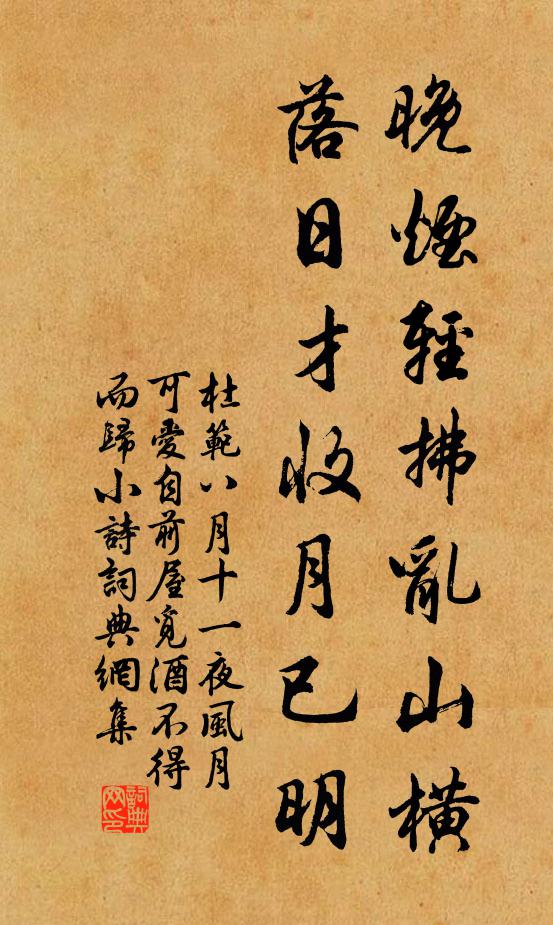 晚煙輕拂亂山橫
落日才收月已明
杜範八月十一夜風月
可愛自前屋覓酒不得
而歸小詩詞典網集
詞典網印